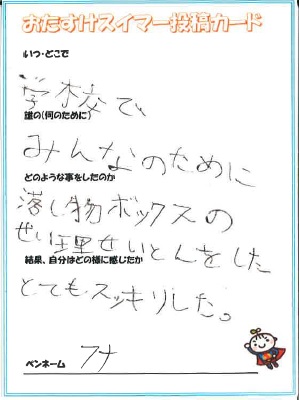 おたすけスイマー投稿カード
いつ・どこで
学校で、
誰の(何のために)
みんなのために
どのような事をしたのか
落し物ボックスの
せい理せいとんをした
結果、自分はどの様に感じたか
とてもスッキリした。
ペンネーム フナ